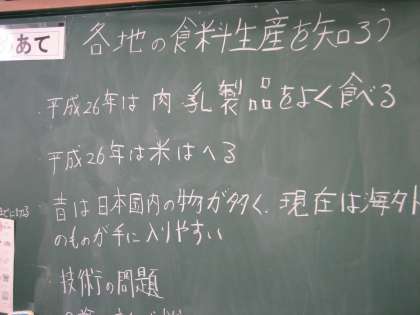 めあて
各地の食料生産を知ろう
・平成26年は肉・乳製品をよく食べる
・平成26年は米はへる
・昔は日本国内の物が多く、現在は海外
のものが手に入りやすい
・技術の問題